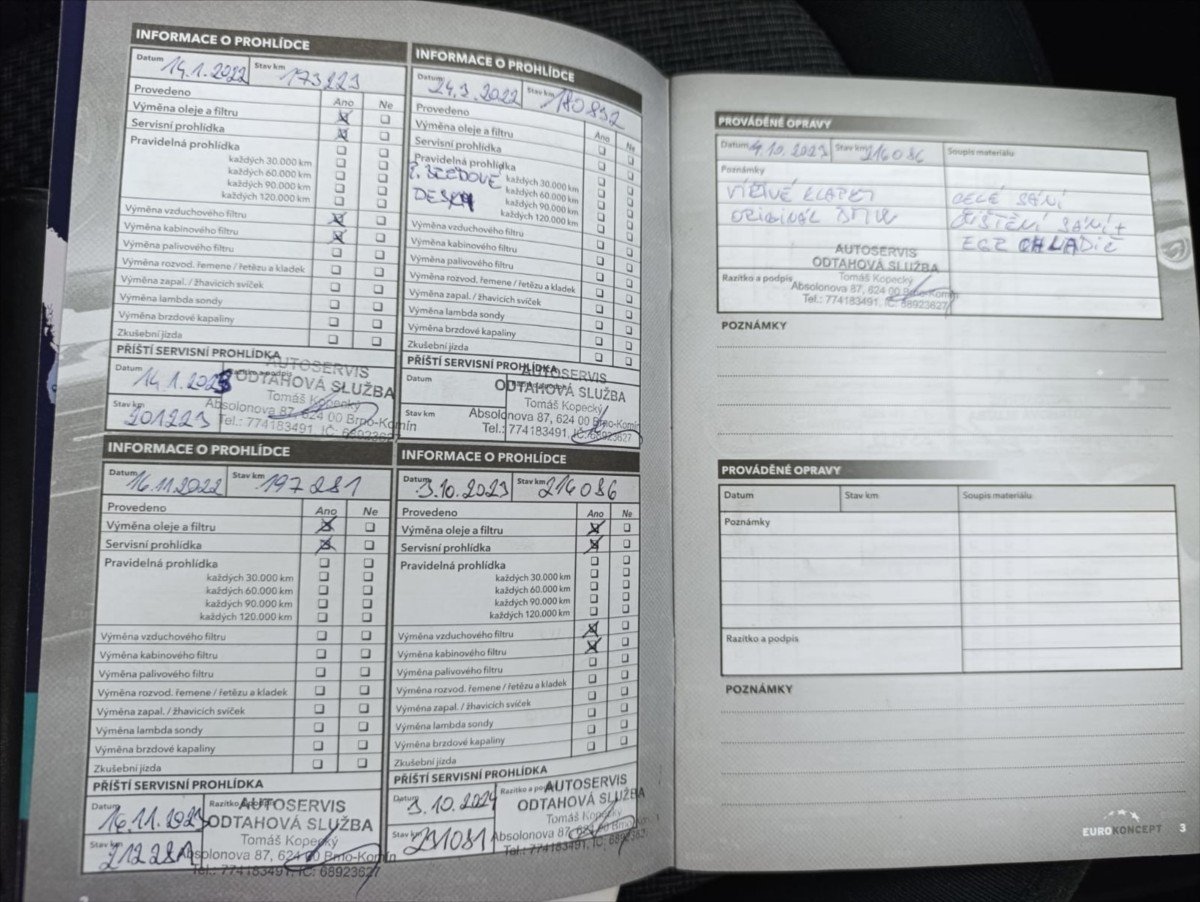 INFORMACE O PROHLÍDCE
Datum 14.1.2022 Stav km 173223
Provedeno Ano Ne
Výměna oleje a filtru
Servisní prohlídka
Pravidelná prohlídka
každých 30.000 km
každých 60.000 km
každých 90.000 km
každých 120.000 km
Výměna vzduchového filtru
Výměna kabinového filtru
Výměna palivového filtru
Výměna rozvod. řemene / řetězu a kladek
Výměna zapal. / žhavicích svíček
Výměna lambda sondy
Výměna brzdové kapaliny
Zkušební jízda
PŘÍŠTÍ SERVISNÍ PROHLÍDKA
Datum 14.1.2023 Razítko a podpis
Stav km 201223
AUTOSERVIS
ODTAHOVÁ SLUŽBA
Tomáš Kopecký
Absolonova 87, 624 00 Brno-Komín
Tel.: 774183491, IČ: 68923627
INFORMACE O PROHLÍDCE
Datum 24.3.2022 Stav km 180832
Provedeno Ano Ne
Výměna oleje a filtru
Servisní prohlídka
Pravidelná prohlídka
každých 30.000 km
každých 60.000 km
každých 90.000 km
každých 120.000 km
DESKY
Výměna vzduchového filtru
Výměna kabinového filtru
Výměna palivového filtru
Výměna rozvod. řemene / řetězu a kladek
Výměna zapal. / žhavicích svíček
Výměna lambda sondy
Výměna brzdové kapaliny
Zkušební jízda
PŘÍŠTÍ SERVISNÍ PROHLÍDKA
Datum
Stav km
AUTOSERVIS
ODTAHOVÁ SLUŽBA
Tomáš Kopecký
Absolonova 87, 624 00 Brno-Komín
Tel.: 774183491, IČ: 68923627
INFORMACE O PROHLÍDCE
Datum 16.11.2022 Stav km 197281
Provedeno Ano Ne
Výměna oleje a filtru
Servisní prohlídka
Pravidelná prohlídka
každých 30.000 km
každých 60.000 km
každých 90.000 km
každých 120.000 km
Výměna vzduchového filtru
Výměna kabinového filtru
Výměna palivového filtru
Výměna rozvod. řemene / řetězu a kladek
Výměna zapal. / žhavicích svíček
Výměna lambda sondy
Výměna brzdové kapaliny
Zkušební jízda
PŘÍŠTÍ SERVISNÍ PROHLÍDKA
Datum 16.11.2023 Razítko a podpis
Stav km 212281
AUTOSERVIS
ODTAHOVÁ SLUŽBA
Tomáš Kopecký
Absolonova 87, 624 00 Brno-Komín
Tel.: 774183491, IČ: 68923627
INFORMACE O PROHLÍDCE
Datum 3.10.2023 Stav km 216086
Provedeno Ano Ne
Výměna oleje a filtru
Servisní prohlídka
Pravidelná prohlídka
každých 30.000 km
každých 60.000 km
každých 90.000 km
každých 120.000 km
Výměna vzduchového filtru
Výměna kabinového filtru
Výměna palivového filtru
Výměna rozvod. řemene / řetězu a kladek
Výměna zapal. / žhavicích svíček
Výměna lambda sondy
Výměna brzdové kapaliny
Zkušební jízda
PŘÍŠTÍ SERVISNÍ PROHLÍDKA
Datum 3.10.2024 Razítko a podpis
Stav km 231081
AUTOSERVIS
ODTAHOVÁ SLUŽBA
Tomáš Kopecký
Absolonova 87, 624 00 Brno-Komín
Tel.: 774183491, IČ: 68923627
PROVÁDĚNÉ OPRAVY
Datum 4.10.2023 Stav km 216086 Soupis materiálu
Poznámky
VÍŘIVÉ KLAPKY CELÉ SÁNÍ
ORIGINÁL BMW ČIŠTĚNÍ SÁNÍ +
EGR CHLADIČ
AUTOSERVIS
ODTAHOVÁ SLUŽBA
Razítko a podpis Tomáš Kopecký
Absolonova 87, 624 00 Brno-Komín
Tel.: 774183491, IČ: 68923627
POZNÁMKY
PROVÁDĚNÉ OPRAVY
Datum Stav km Soupis materiálu
Poznámky
Razítko a podpis
POZNÁMKY
EUROKONCEPT 3